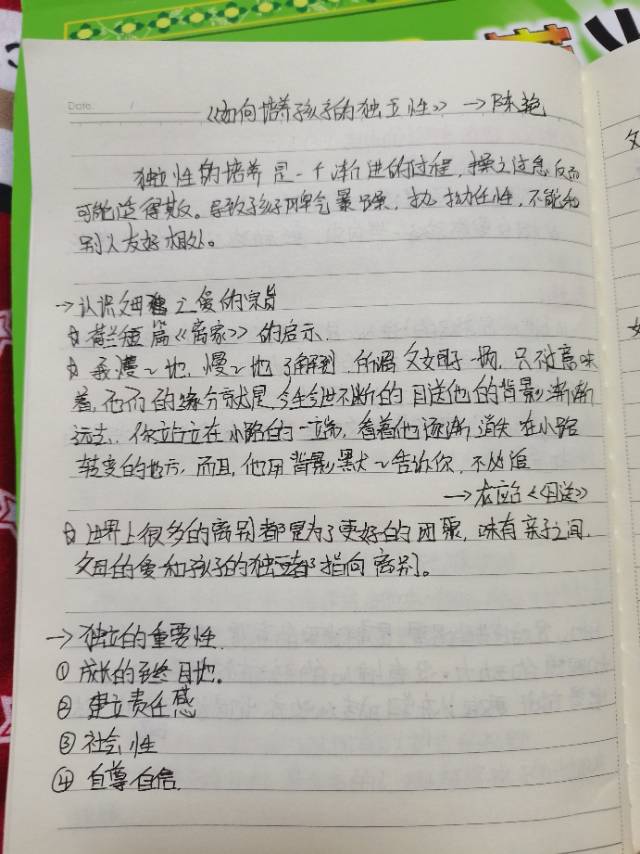 Date: /
《如何培养孩子的独立性》 → 陈艳
独立性的培养是一个渐进的过程,操之过急反而
可能适得其反。导致孩子脾气暴躁,执拗任性,不能和
别人友好相处。
→ 认识父母之爱的宗旨
荷兰短篇《离家》的启示.
我慢~地,慢~地了解到,所谓父女母子一场,只不过意味
着,你和他的缘分就是今生今世不断的目送他的背影渐渐
远去. 你站立在小路的一端,看着他逐渐消失在小路
转变的地方,而且,他用背影默~告诉你,不必追
→ 龙应台《目送》
世界上很多的离别都是为了更好的团聚,唯有亲子之间,
父母的爱和孩子的独立都指向离别。
→ 独立的重要性.
① 成长的至终目地.
② 建立责任感
③ 社会性
④ 自尊自信.